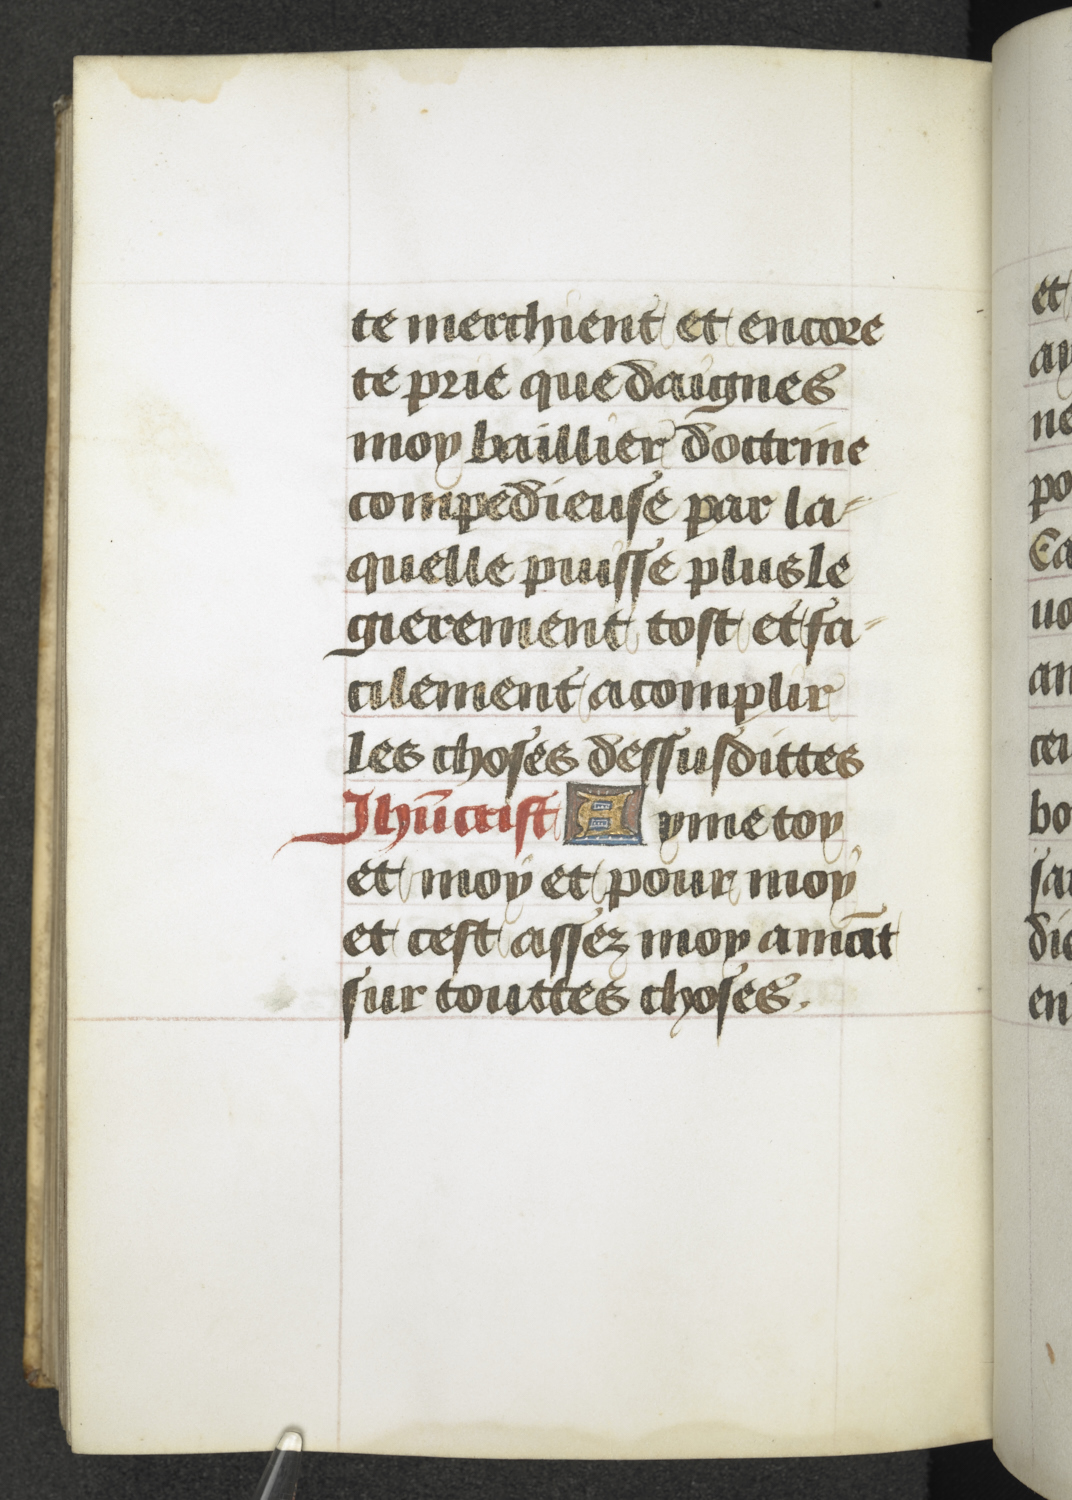 te merchient et encore
te prie que daignes
moy baillier doctrine
compēdieuse par la⸗
quelle puisse plus le
gierement tost et fa⸗
cilement acomplir
les choses dessusdittes
Jhūcrist Ayme toy
et moy et pour moy
et cest assez moy amāt
sur touttes choses.
et
ay
ne
po
Ca
uo
am
cei
bo
sai
die
en